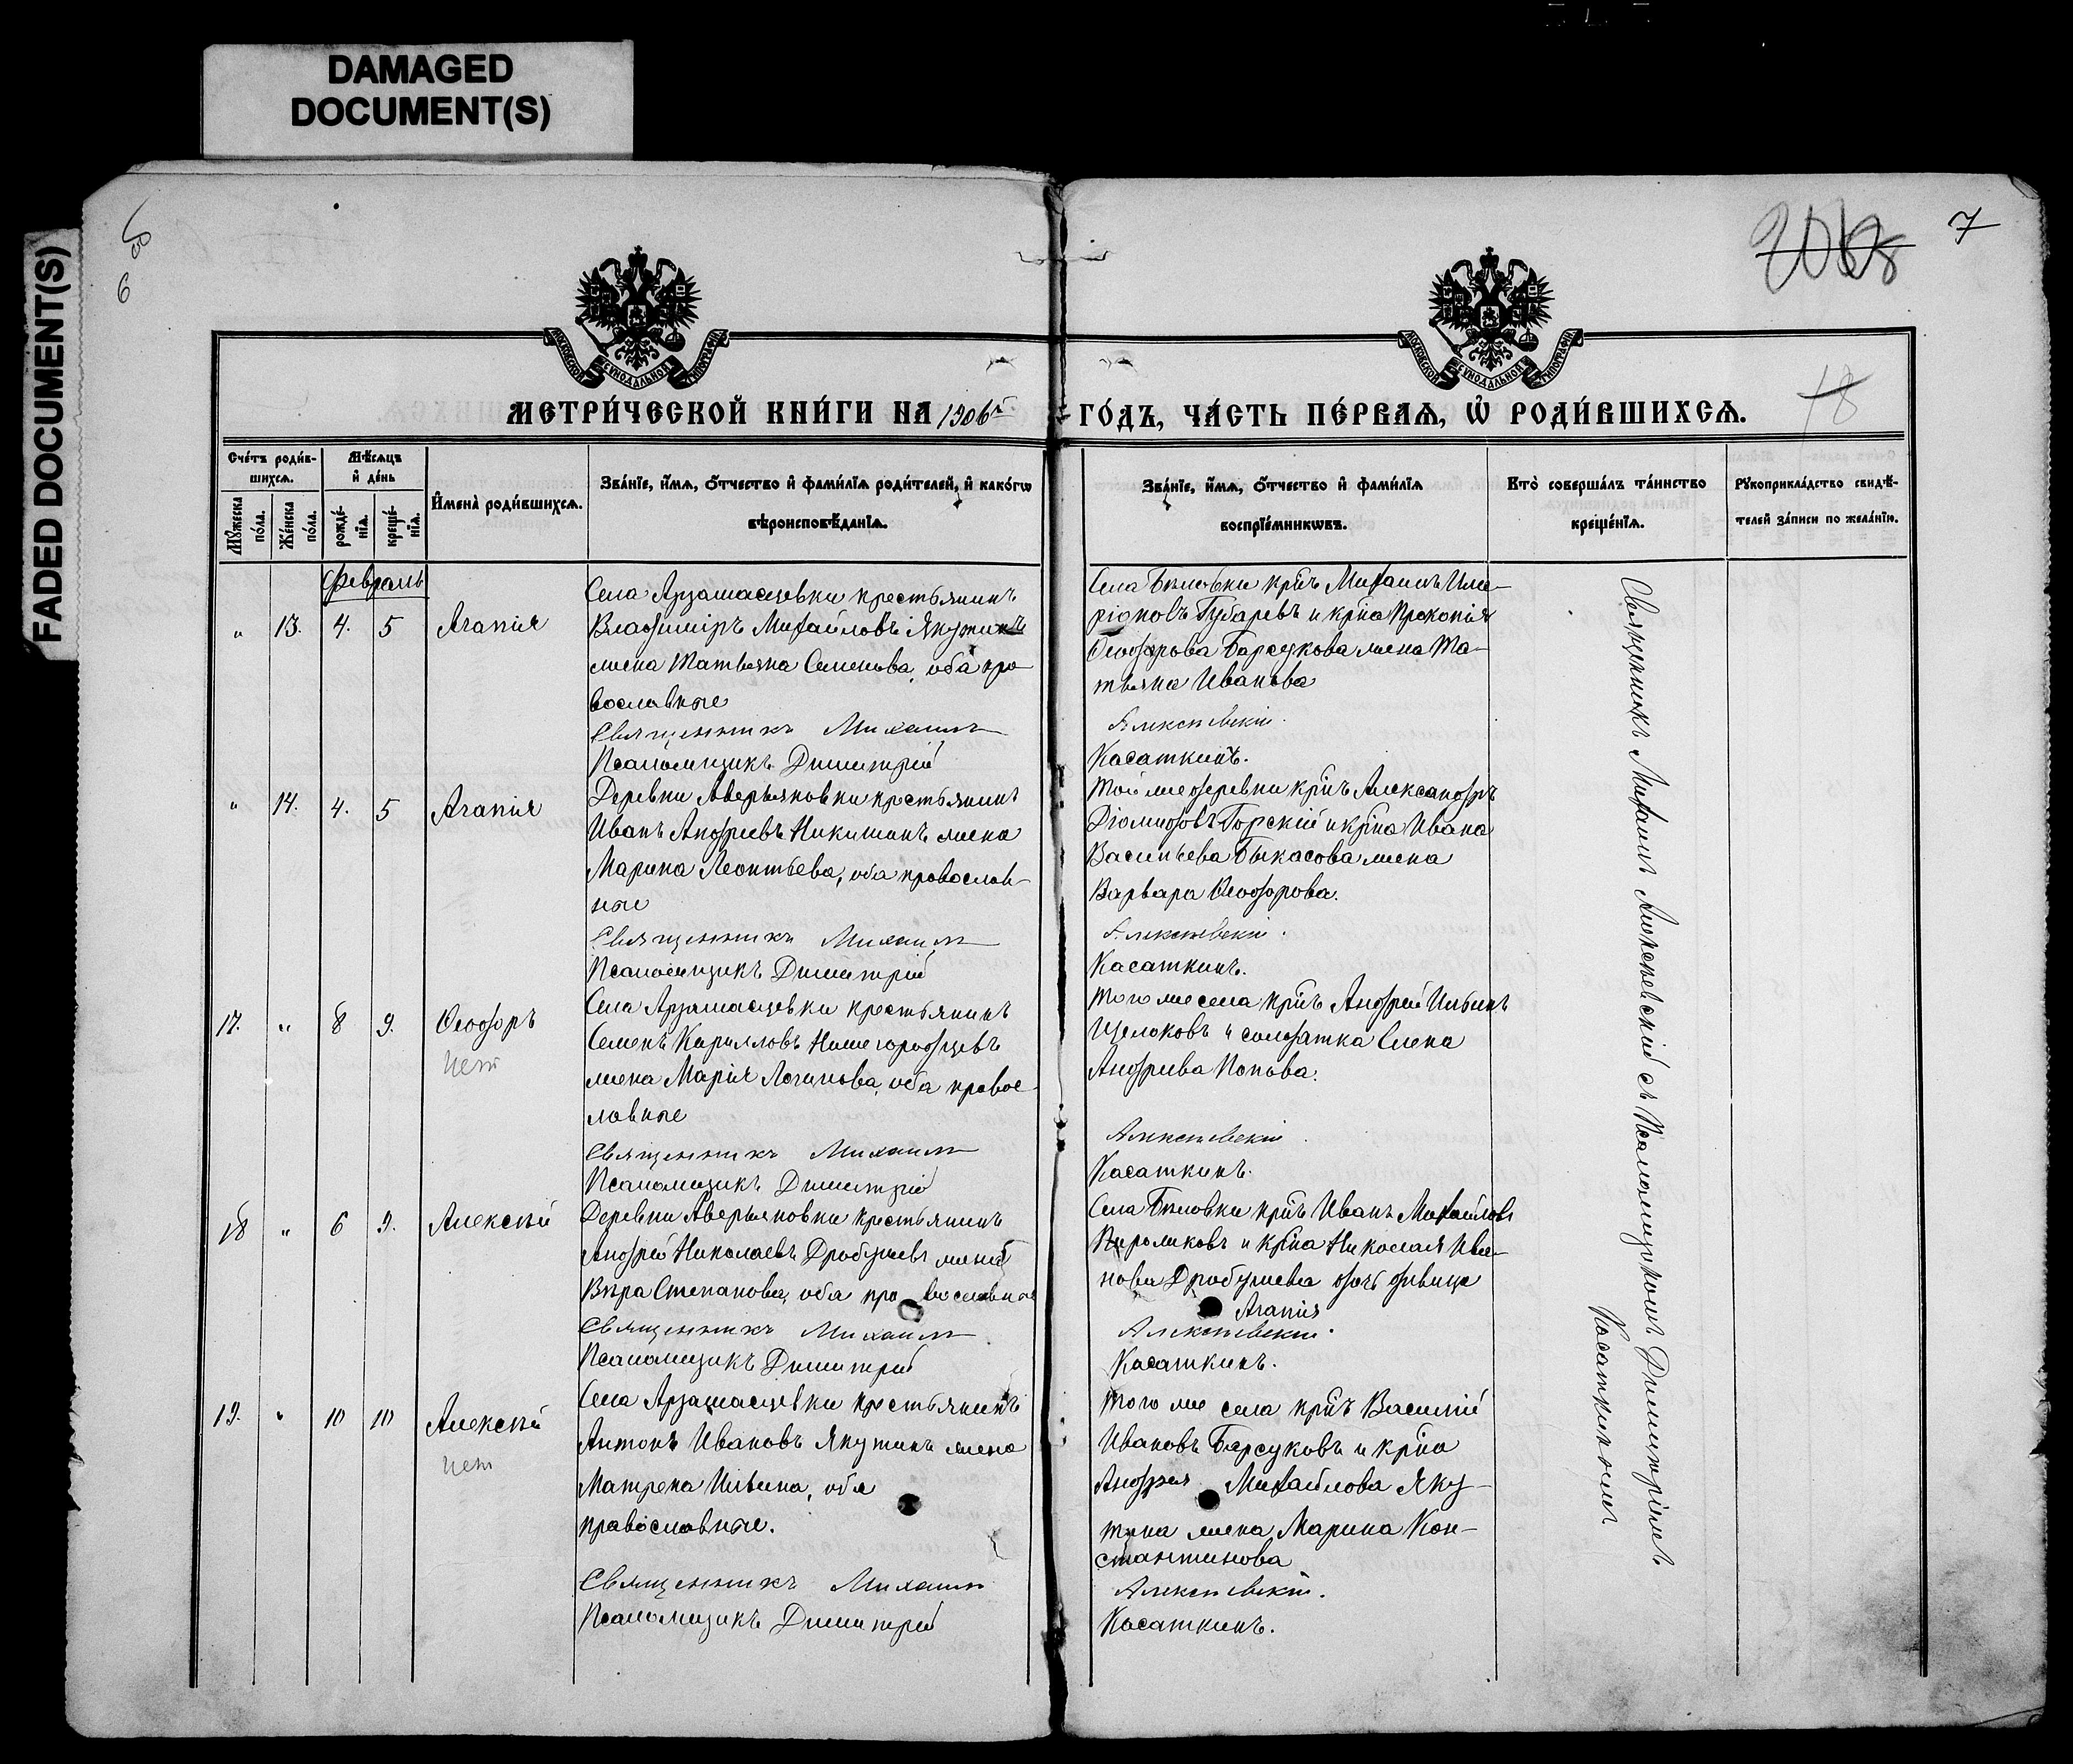 DAMAGED
DOCUMENT(S)
FADED DOCUMENT(S)
6
7
18
МОСКОВСКОЙ СѴНОДАЛЬНОЙ ТИПОГРАФІИ
МОСКОВСКОЙ СѴНОДАЛЬНОЙ ТИПОГРАФІИ
МЕТРИ́ЧЕСКОЙ КНИ́ГИ НА 1906 й ГО́ДЪ, ЧА́СТЬ ПЕ́РВАѦ, Ѡ҆ РОДИ́ВШИХСѦ.
Сче́тъ роди́в-
шихсѧ.
Мѣ́сѧцъ
и҆ де́нь
Мꙋ́жеска по́ла.
Же́нска по́ла.
рожде́-нїѧ.
креще́-нїѧ.
И҆мена̀ роди́вшихсѧ.
Зва́нїе, и҆́мѧ, ѻ҆́тчество и҆ фами́лїѧ роди́телей, и҆ како́гѡ
вѣроисповѣ́данїѧ.
Зва́нїе, и҆́мѧ, ѻ҆́тчество и҆ фами́лїѧ
воспрїе́мникѡвъ.
Кто̀ соверша́лъ та́инство
креще́нїѧ.
Рꙋкоприкла́дство свидѣ́-
телей за́писи по жела́нїю.
Февраль
" 13. 4. 5 Агапія
Села Арзамасцевки крестьянинъ
Владиміръ Михайловъ Якунинъ
жена Татьяна Семенова, оба пра-
вославные
Священникъ Михаилъ
Псаломщикъ Димитрій
Села Бѣловки кр҃нъ Михаилъ Ила-
ріоновъ Губаревъ и кр҃на Прокопія
Ѳеодорова Барсукова жена Та-
тьяна Иванова
Алексѣевскій.
Касаткинъ.
" 14. 4. 5 Агапія
Деревни Аверьяновки крестьянинъ
Иванъ Андреевъ Никишинъ жена
Марина Леонтьева, оба православ-
ные
Священникъ Михаилъ
Псаломщикъ Димитрій
Той же деревни кр҃нъ Александръ
Діомидовъ Горскій и кр҃на Ивана
Васильева Быкасова жена
Варвара Ѳеодорова.
Алексѣевскій.
Касаткинъ.
17. " 8 9. Ѳеодоръ
нет
Села Арзамасцевки крестьянинъ
Семенъ Кирилловъ Нижегородцевъ
жена Марія Логинова, оба правос-
лавные
Священникъ Михаилъ
Псаломщикъ Димитрій
Того же села кр҃нъ Андрей Ильинъ
Щелоковъ и солдатка Елена
Андреева Попова.
Алексѣевскій.
Касаткинъ.
18 " 6 9. Алексѣй
Деревни Аверьяновки крестьянинъ
Андрей Николаевъ Дробушевъ жена
Вѣра Степанова, оба православные
Священникъ Михаилъ
Псаломщикъ Димитрій
Села Бѣловки кр҃нъ Иванъ Михайловъ
и кр҃на Николая Ива-
нова Дробушева дочь дѣвица
Агапія
Алексѣевскій.
Касаткинъ.
19. " 10 10 Алексѣй
нет
Села Арзамасцевки крестьянинъ
Антонъ Ивановъ Якунинъ жена
Матрена Ильина, оба
православные.
Священникъ Михаилъ
Псаломщикъ Димитрій
Того же села кр҃нъ Василій
Ивановъ Барсуковъ и кр҃на
Андрея Михайлова Яку-
нина жена Марина Кон-
стантинова
Алексѣевскій.
Касаткинъ.
Священникъ Михаилъ Алексѣевскій съ Псаломщикомъ Димитріемъ
Касаткинымъ